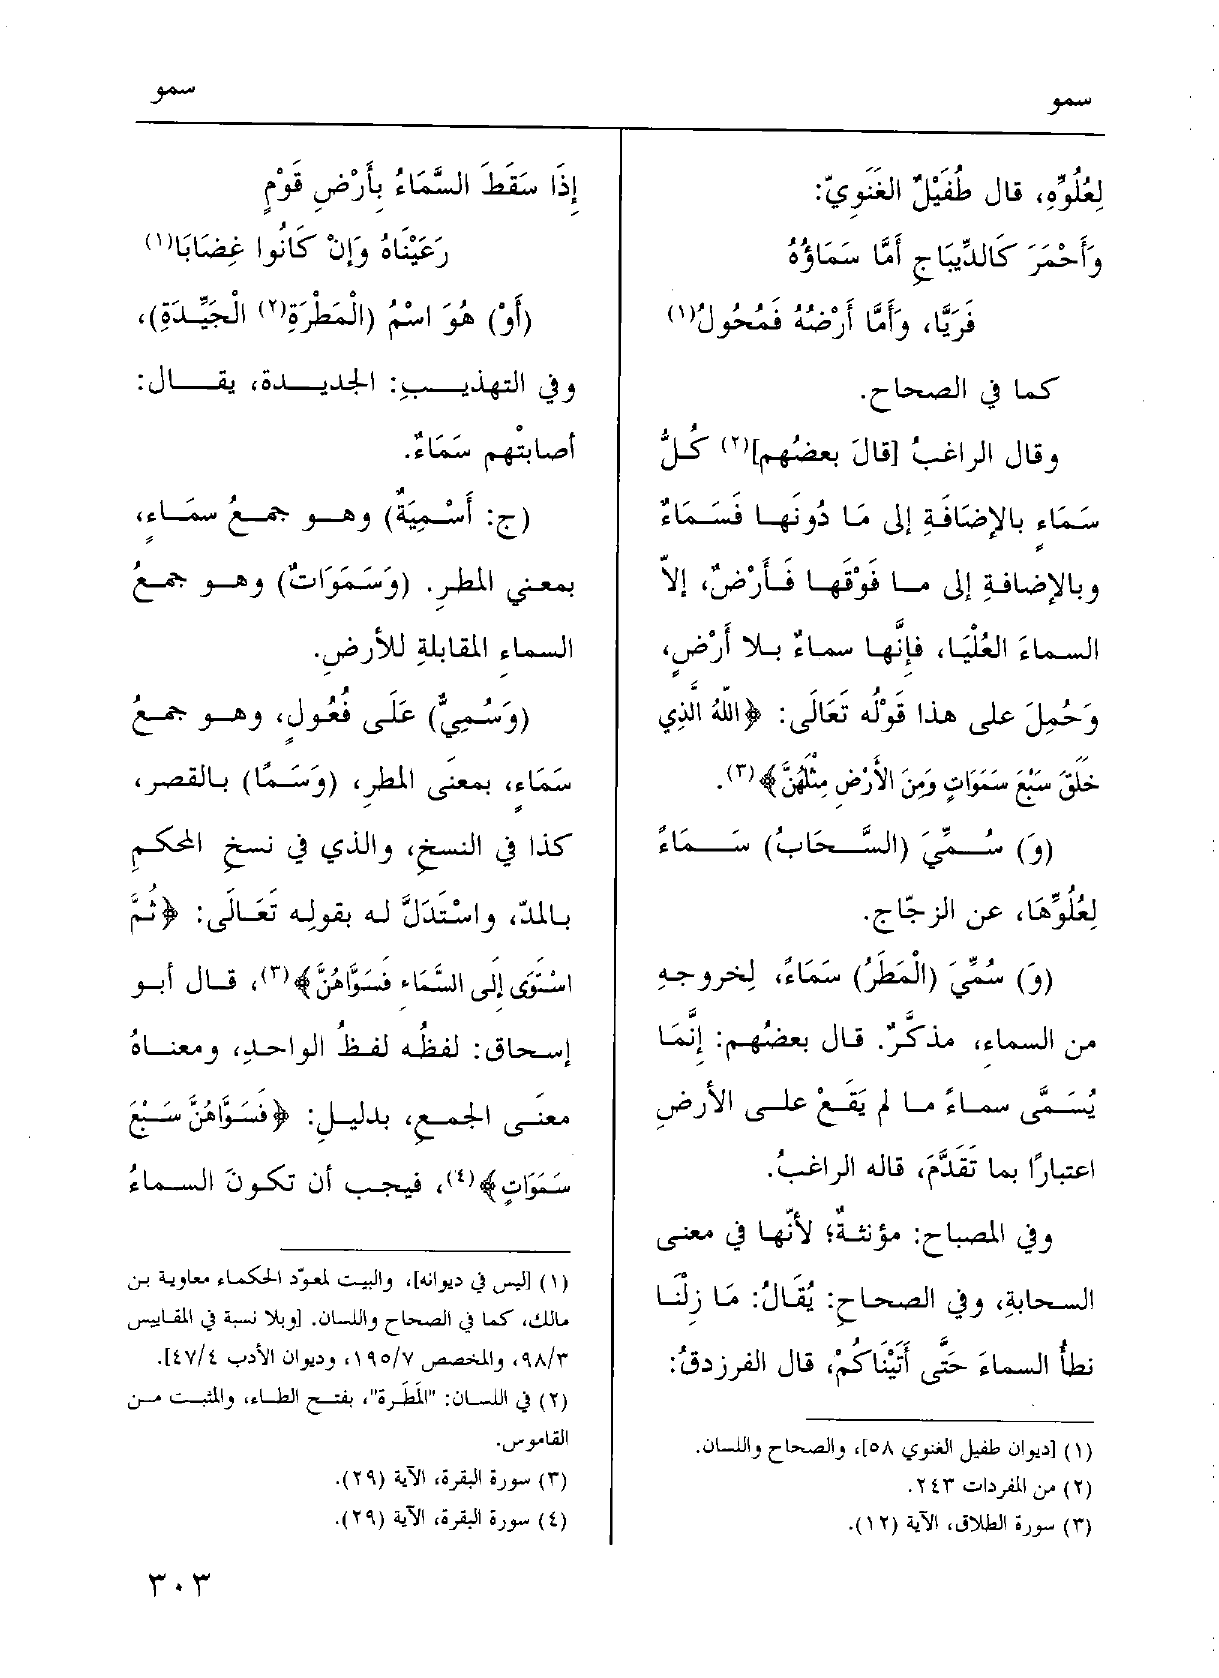 سمو
سمو
لِعُلُوِّهِ، قال طُفَيْلٌ الغَنَوِيّ:
وَأَحْمَرَ كَالدِّيبَاجِ أَمَّا سَمَاؤُهُ
فَرَيَّا، وَأَمَّا أَرْضُهُ فَمُحُولُ(١)
كما في الصحاح.
وقال الراغبُ [قالَ بعضُهم](٢) كُلُّ
سَمَاءٍ بالإضَافَةِ إلى مَا دُونَها فَسَمَاءٌ
وبالإضافةِ إلى ما فَوْقَها فَأَرْضٌ، إلاّ
السماءَ العُلْيَا، فإنَّها سماءٌ بلا أَرْضٍ،
وَحُمِلَ على هذا قَوْلُه تَعَالَى: ﴿اللَّهُ الَّذِي
خَلَقَ سَبْعَ سَمَوَاتٍ وَمِنَ الأَرْضِ مِثْلَهُنَّ﴾(٣).
(وَ) سُمِّيَ (السَّحَابُ) سَمَاءً
لِعُلُوِّهَا، عن الزجّاج.
(وَ) سُمِّيَ (الْمَطَرُ) سَمَاءً، لِخروجِهِ
من السماءِ، مذكَّرٌ. قال بعضُهم: إنَّمَا
يُسَمَّى سماءً ما لم يَقَعْ على الأرضِ
اعتبارًا بما تَقَدَّمَ، قاله الراغبُ.
وفي المصباح: مؤنثةٌ؛ لأنّها في معنى
السحابةِ، وفي الصحاحِ: يُقَالُ: مَا زِلْنَا
نطأُ السماءَ حَتَّى أَتَيْنَاكُمْ، قال الفرزدقُ:
(١) [ديوان طفيل الغنوي ٥٨]، والصحاح واللسان.
(٢) من المفردات ٢٤٣.
(٣) سورة الطلاق، الآية (١٢).
إِذَا سَقَطَ السَّمَاءُ بِأَرْضِ قَوْمٍ
رَعَيْنَاهُ وَإِنْ كَانُوا غِضَابَا(١)
(أَوْ) هُوَ اسْمُ (الْمَطْرَةِ(٢) الْجَيِّدَةِ)،
وفي التهذيبِ: الجديدة، يقال:
أصابتْهم سَمَاءٌ.
(ج: أَسْمِيَةٌ) وهو جمعُ سمَاءٍ،
بمعني المطرِ. (وَسَمَوَاتٌ) وهو جمعُ
السماءِ المقابلةِ للأرضِ.
(وَسُمِيٌّ) عَلَى فُعُولٍ، وهو جمعُ
سَمَاءٍ، بمعنَى المطرِ، (وَسَمًا) بالقصرِ،
كذا في النسخِ، والذي في نسخِ المحكمِ
بالمدّ، واسْتَدَلَّ له بقولِه تَعَالَى: ﴿ثُمَّ
اسْتَوَى إِلَى السَّمَاءِ فَسَوَّاهُنَّ﴾(٣)، قال أبو
إسحاق: لفظُه لفظُ الواحدِ، ومعناهُ
معنَى الجمعِ، بدليلِ: ﴿فَسَوَّاهُنَّ سَبْعَ
سَمَوَاتٍ﴾(٤)، فيجب أن تكونَ السماءُ
(١) [ليس في ديوانه]، والبيت لمعوّد الحكماء معاوية بن
مالك، كما في الصحاح واللسان. [وبلا نسبة في المقاييس
٩٨/٣، والمخصص ١٩٥/٧، وديوان الأدب ٤٧/٤].
(٢) في اللسان: "المَطَرة"، بفتح الطاء، والمثبت من
القاموس.
(٣) سورة البقرة، الآية (٢٩).
(٤) سورة البقرة، الآية (٢٩).
٣٠٣